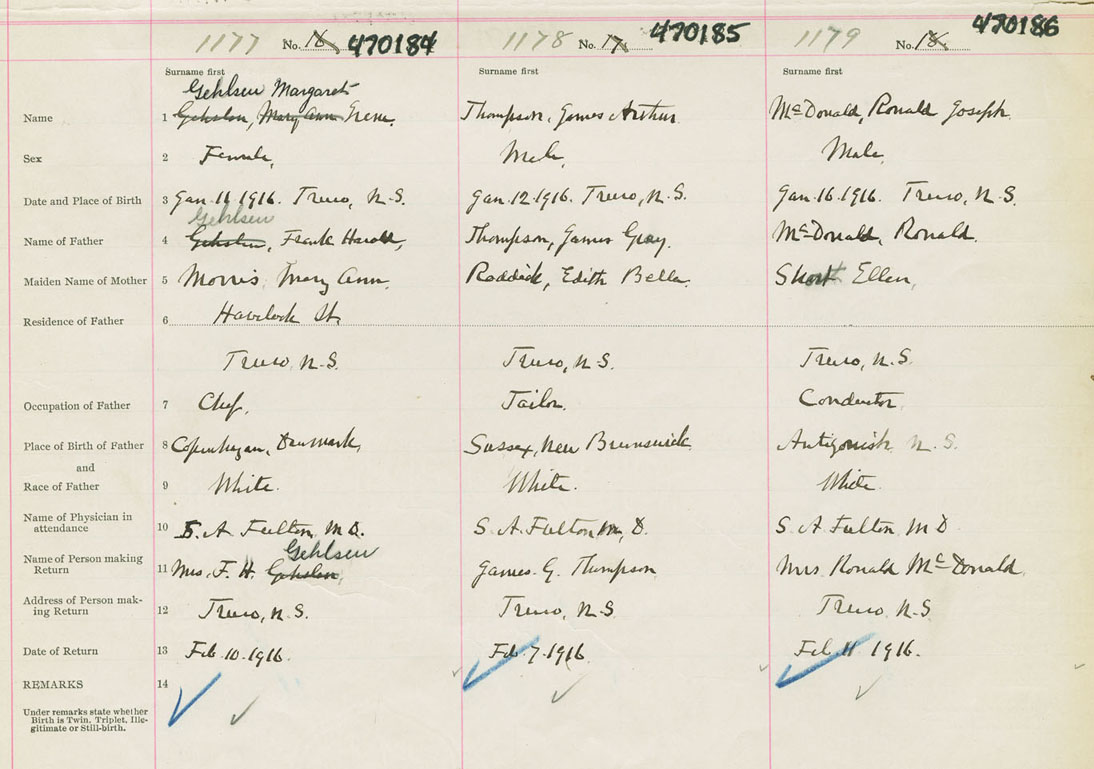 1177 No. 16 470184 1178 No. 17 470185 1179 No. 18 470186
Surname first Surname first Surname first
Gehlsen Margaret
Name 1 Gehslen, Mary Ann Irene. Thompson, James Arthur. McDonald, Ronald Joseph.
Sex 2 Female, Male, Male,
Date and Place of Birth 3 Jan. 11 1916. Truro, N.S. Jan. 12. 1916. Truro, N.S. Jan. 16. 1916. Truro, N.S.
Gehlsen
Name of Father 4 Gehslen, Frank Harold, Thompson, James Gray. McDonald, Ronald.
Maiden Name of Mother 5 Morris, Mary Ann. Reddick, Edith Bella. Short Ellen,
Residence of Father 6 Havelock St,
Truro, N.S. Truro, N.S. Truro, N.S.
Occupation of Father 7 Chef, Tailor. Conductor,
Place of Birth of Father 8 Copenhagan, Denmark, Sussex, New Brunswick. Antigonish N.S.
and
Race of Father 9 White. White. White.
Name of Physician in
attendance 10 S. A. Fulton, M.D. S. A. Fulton M.D. S. A. Fulton M D
Gehlsen
Name of Person making
Return 11 Mrs. F. H. Gehslen, James. G. Thompson Mrs Ronald McDonald,
Address of Person mak-
ing Return 12 Truro, N.S. Truro, N.S Truro, N.S.
Date of Return 13 Feb. 10. 1916. Feb. 7. 1916. Feb. 11 1916.
REMARKS 14
Under remarks state whether
Birth is Twin, Triplet, Ille-
gitimate or Still-birth.